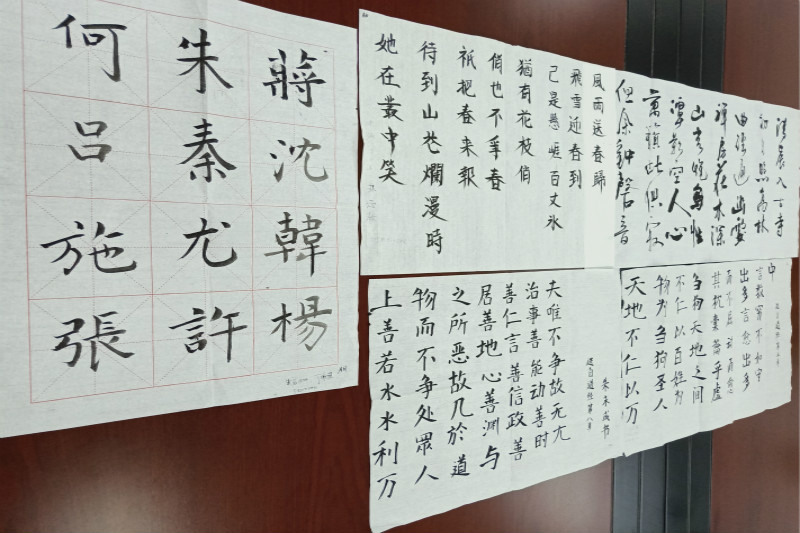 蔣沈韓楊
朱秦尤許
何呂施張
風雨送春歸
飛雪迎春到
已是懸崕百丈冰
猶有花枝俏
俏也不爭春
祇把春来報
待到山花爛漫時
她在叢中笑
清晨入古寺
初日照高林
曲徑通幽處
禅房花木深
山光悦鸟性
潭影空人心
萬籁此俱寂
但余钟磬音
上善若水水利万
物而不争处眾人
之所恶故几於道
居善地心善渊与
善仁言善信政善
治事善能动善时
夫唯不争故无尤
道德经第八章
天地不仁以万
物为刍狗圣人
不仁以百姓为
刍狗天地之间
其犹橐龠乎虚
而不屈动而愈
出多言愈出多
言数穷不如守
中